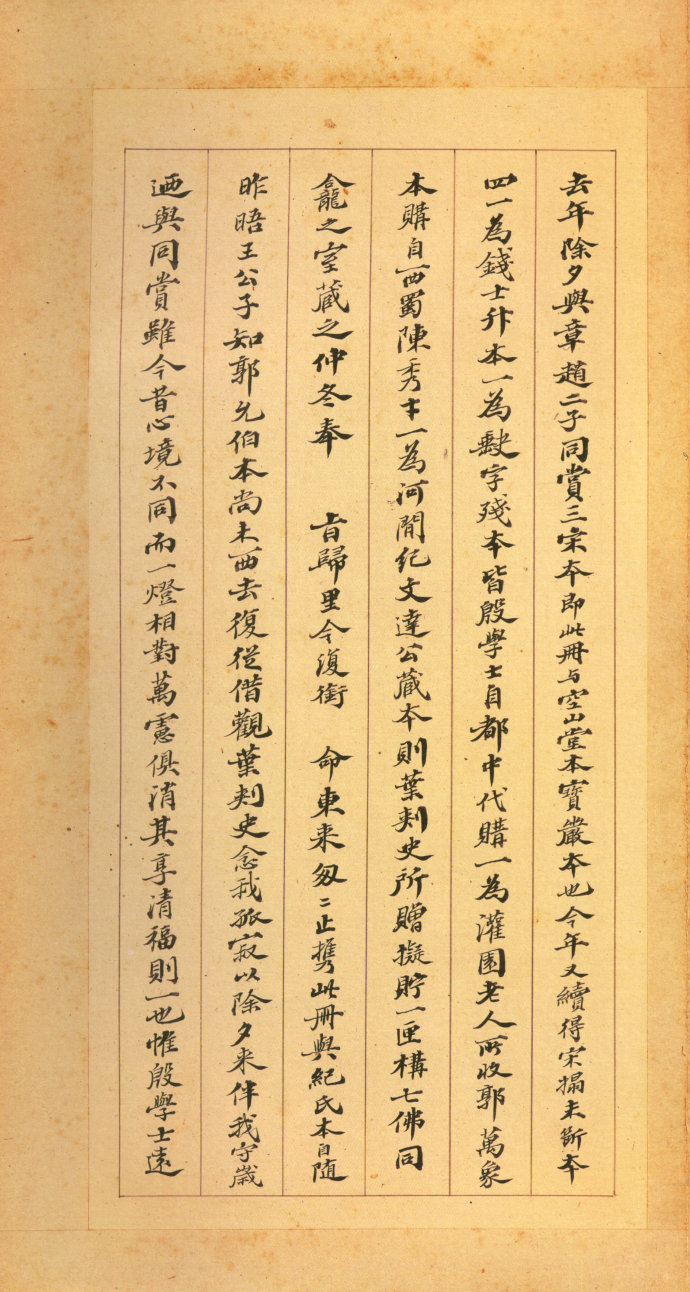 去年除夕與章趙二子同賞三宋本即此冊与空山堂本寶嚴本也今年又續得宋搨未斷本
四一為錢士升本一為缺字殘本皆殷學士自都中代購一為灌園老人所收郭萬象
本購自西蜀陳秀才一為河間紀文達公藏本則葉刺史所贈擬貯一匣構七佛同
龕之室藏之仲冬奉　旨歸里今復銜　命東来匆二止攜此冊與紀氏本自随
昨晤王公子知郭允伯本尚未西去復從借觀葉刺史念我孤寂以除夕来伴我守歲
迺與同賞雖今昔心境不同而一燈相對萬慮俱消其享清福則一也惟殷學士遠